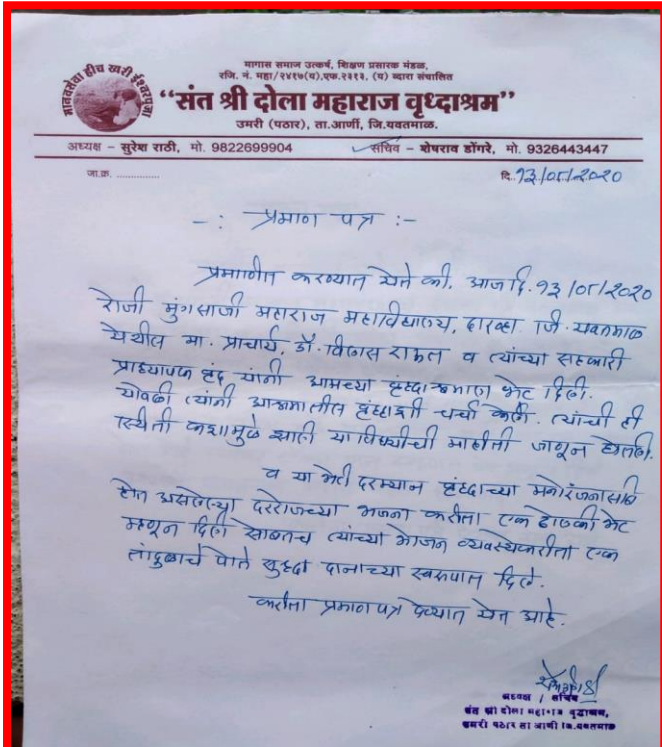 मानवसेवा हीच खरी ईश्वरपूजा
मागास समाज उत्कर्ष, शिक्षण प्रसारक मंडळ,
रजि. नं. महा/२४१७(य),एफ.२३१३, (य) व्दारा संचालित
“संत श्री दोला महाराज वृध्दाश्रम”
उमरी (पठार), ता.आर्णी, जि.यवतमाळ.
अध्यक्ष – सुरेश राठी, मो. 9822699904 सचिव – शेषराव डोंगरे, मो. 9326443447
जा.क्र. ............... दि. १३/०८/२०२०
-: प्रमाण पत्र :-
प्रमाणीत करण्यात येते की. आज दि. १३/०८/२०२०
रोजी मुंगसाजी महाराज महाविद्यालय, दारव्हा जि. यवतमाळ
येथील मा. प्राचार्य. डॉ. विलास राऊत व त्यांच्या सहकारी
प्राध्यापक वृंद यांनी आमच्या वृध्दाश्रमाला भेट दिली.
यावेळी त्यांनी आश्रमातील वृध्दाशी चर्चा केली. त्यांची ही
स्थिती कशामुळे झाली याविषयीची माहीती जाणून घेतली.
व या भेटी दरम्यान वृध्दाच्या मनोरंजनासाठी
होत असलेल्या दररोजच्या भजना करीता एक ढोलकी भेट
म्हणून दिली सोबतच त्यांच्या भोजन व्यवस्थेकरीता एक
तांदुळाचे पोते सुध्दा दानाच्या स्वरूपात दिले.
करीता प्रमाणपत्र देण्यात येत आहे.
अध्यक्ष / सचिव
संत श्री दोला महाराज वृद्धाश्रम,
उमरी पठार ता आर्णी जि.यवतमाळ